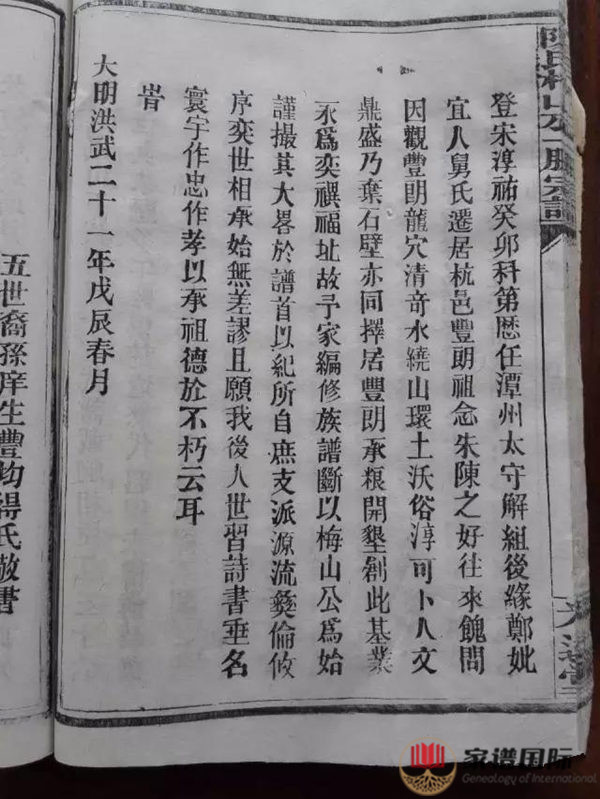 登宋淳祐癸卯科第歷任潭州太守解組後緣鄭妣
宜人舅氏遷居杭邑豐朗祖念朱陳之好往來餽問
因觀豐朗龍穴清奇水繞山環土沃俗淳可卜人文
鼎盛乃棄石壁亦同擇居豐朗承粮開墾創此基業
永爲奕禩福址故予家編修族譜斷以梅山公爲始
謹撮其大畧於譜首以紀所自庶支派源流彝倫攸
序奕世相承始無差謬且願我後人世習詩書垂名
寰宇作忠作孝以承祖德於不朽云耳
旹
大明洪武二十一年戊辰春月
五世裔孫庠生豐均得氏敬書
家谱国际
Genealogy of International